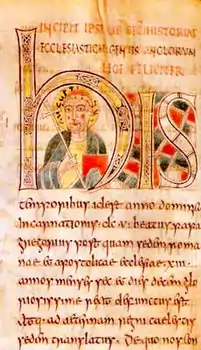 INCIPIT HISTORIAE
ECCLESIASTICAE GENTIS ANGLORUM
FELICITER
hIS
temporibus id est anno domini
Incarnationis dc u beatus papa
gregorius post quam sedem roma
nae et apostolicae ecclesiae xiii
annos menses sex et dies decem glo
riosissime rexit defunctus est
Atque ad aeternam regni caelestis
sedem translatus. De quo nos con